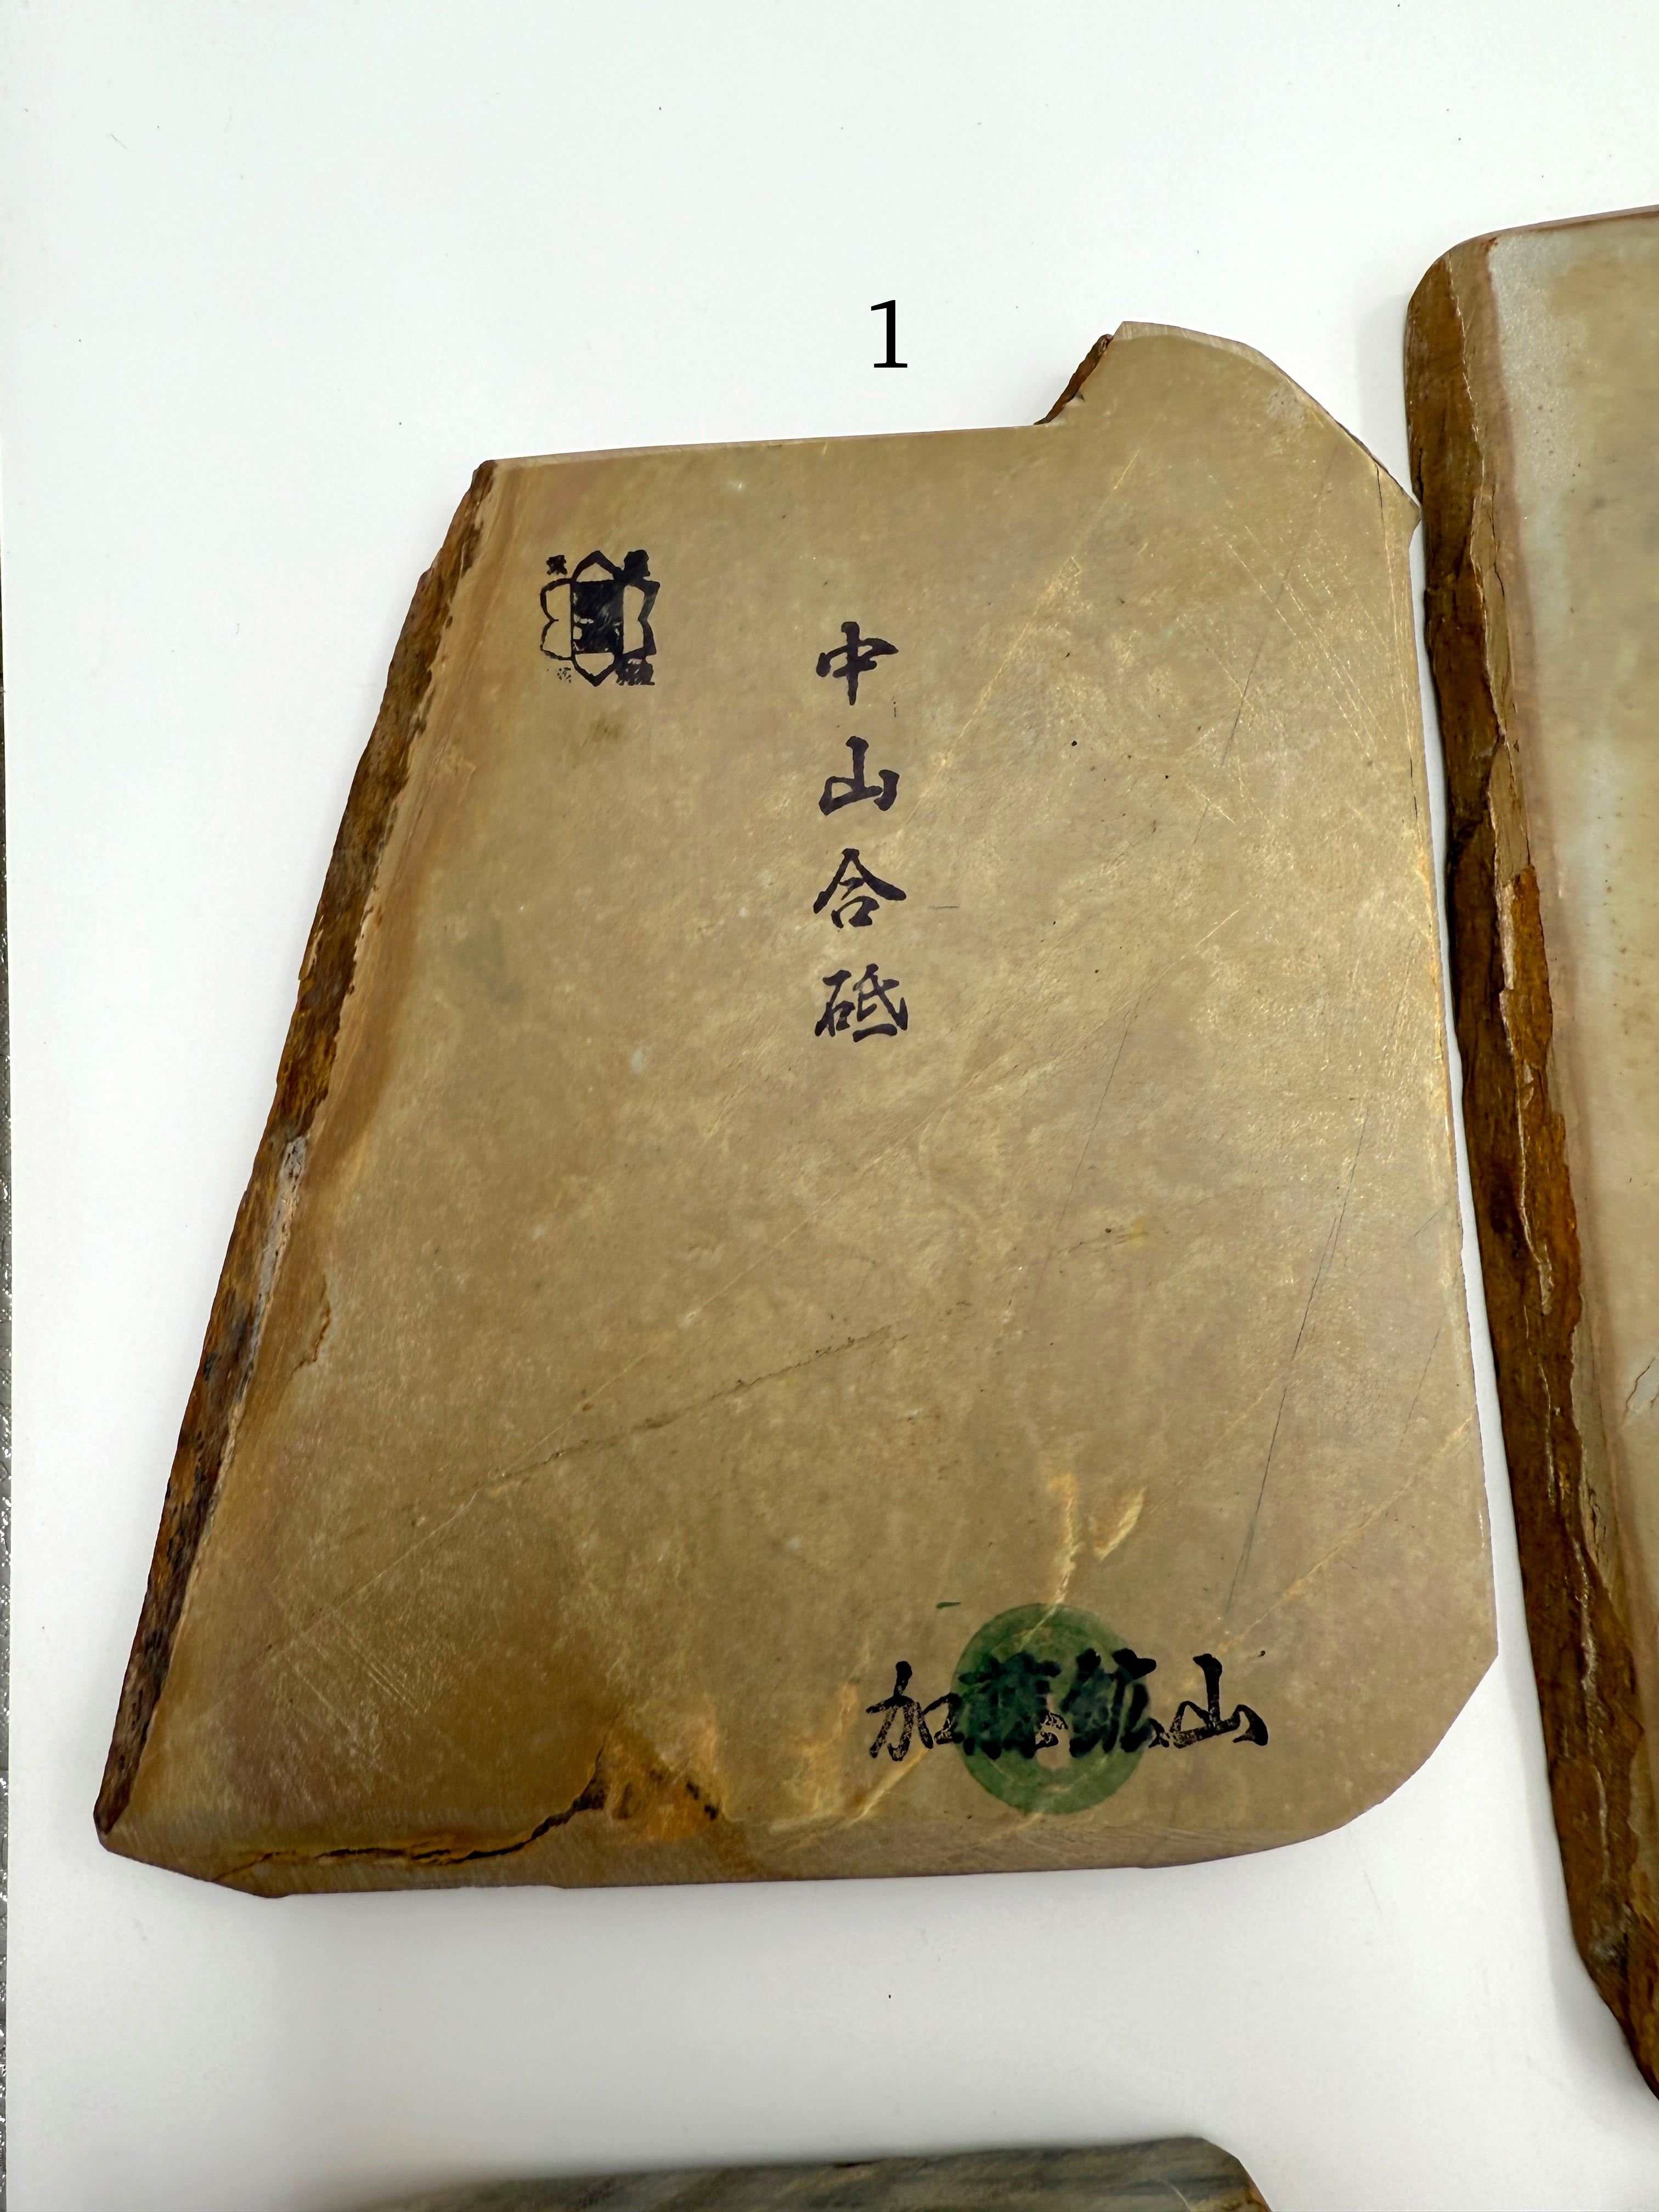 1
中山合砥
加藤鉱山